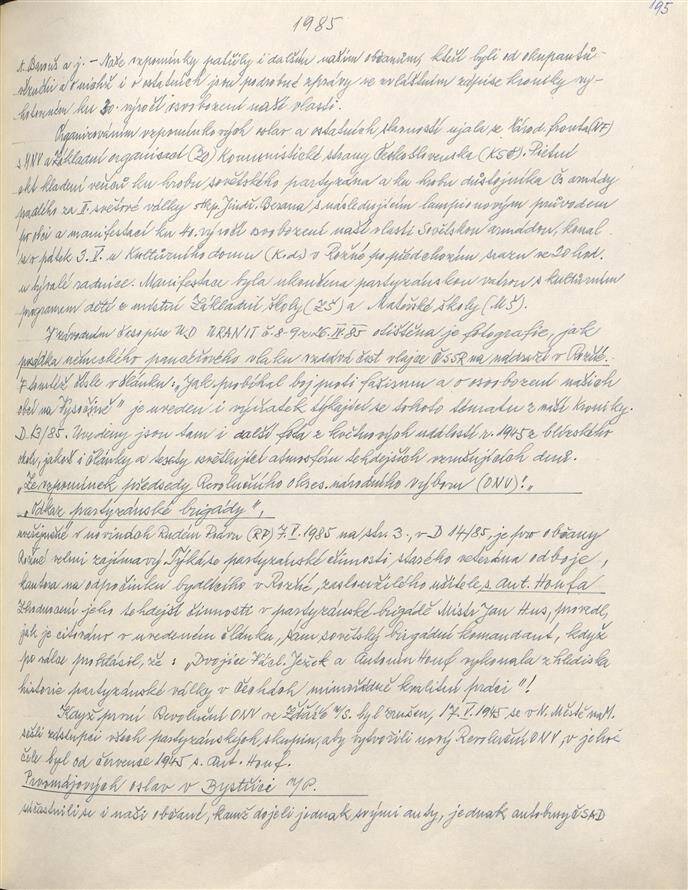 195
1985
st. Beneš a j. – Naše vzpomínky patřily i dalším našim občanům, kteří byli od okupantů
vězněni a o nichž i o ostatních jsou podrobné zprávy ve zvláštním zápise kroniky vy-
hotoveném ku 30. výročí osvobození naší vlasti.
Organisováním vzpomínkových oslav a ostatních slavností ujala se Národ. fronta (NF)
s MNV a Základní organisací (ZO) Komunistické strany Československa (KSČ). Pietní
akt kladení věnců ku hrobu sovětského partyzána a ku hrobu důstojníka čs armády
padlého za II. světové války škp. Jindř. Berana s následujícím lampionovým průvodem
po obci a manifestací ku 40. výročí osvobození naší vlasti Sovětskou armádou, konal
se v pátek 3. V. u Kulturního domu (K.d.) v Rožné po předchozím srazu ve 20 hod.
u bývalé radnice. Manifestace byla ukončena partyzánskou vatrou s kulturním
programem dětí z místní Základní školy (ZŠ) a Mateřské školy (MŠ).
V závodním časopise U.D URANIT č. 8-9 ze 26. IV. 85 otištěna je fotografie, jak
posádka německého pancéřového vlaku vzdává čest vlajce ČSSR na nádraží v Rožné.
V tomtéž čísle v článku: „Jak probíhal boj proti fašizmu a o osvobození našich
obcí na Vysočině" je uveden i výňatek týkající se tohoto tématu z naší kroniky.
D 13/85. Uvedeny jsou tam i další fota z květnových událostí r. 1945 z blízského
okolí, jakož i články a texty osvětlující atmosféru tehdejších vzrušujících dnů.
„Ze vzpomínek předsedy Revolučního okres. národního výboru (ONV)!"
„Odkaz partyzánské brigády",
uveřejněné v novinách Rudém Právu (RP) 7. V. 1985 na str. 3. v D 14/85, je pro občany
Rožné velmi zajímavý. Týká se partyzánské činnosti starého veterána odboje,
kantora na odpočinku bydlícího v Rožné, zasloužilého učitele, s. Ant. Houfa
Zhodnocení jeho tehdejší činnosti v partyzánské brigádě Mistr Jan Hus, provedl,
jak je citováno v uvedeném článku, „sám sovětský brigádní komandant, když
po válce prohlásil, že: „Dvojice Václ. Ježek a Antonín Houf vykonala z hlediska
historie partyzánské války v Čechách mimořádně kvalitní práci"!
Když první Revoluční ONV ve Žďáře n/S. byl zrušen, 17. V. 1945 se v N. Městě na M.
sešli zástupci všech partyzánských skupin, aby vytvořili nový Revoluční ONV, v jehož
čele byl od července 1945 s. Ant. Houf.
Prvomájových oslav v Bystřici n/P.
súčastnili se i naši občané, kamž dojeli jednak svými auty, jednak autobusy ČSAD